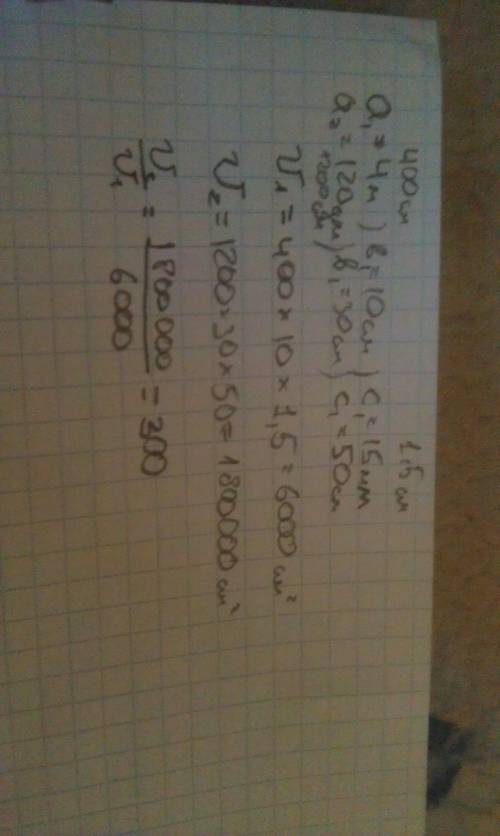 400см 1,5 см
a₁ = 4м) b₁ = 10см) c₁ = 15мм
a₂ = 120дм) b₁ = 30см) c₁ = 50см
1200см)
V₁ = 400 × 10 × 1,5 = 6000 см²
V₂ = 1200×30×50 = 1800000 см²
V₂/V₁ = 1800000/6000 = 300